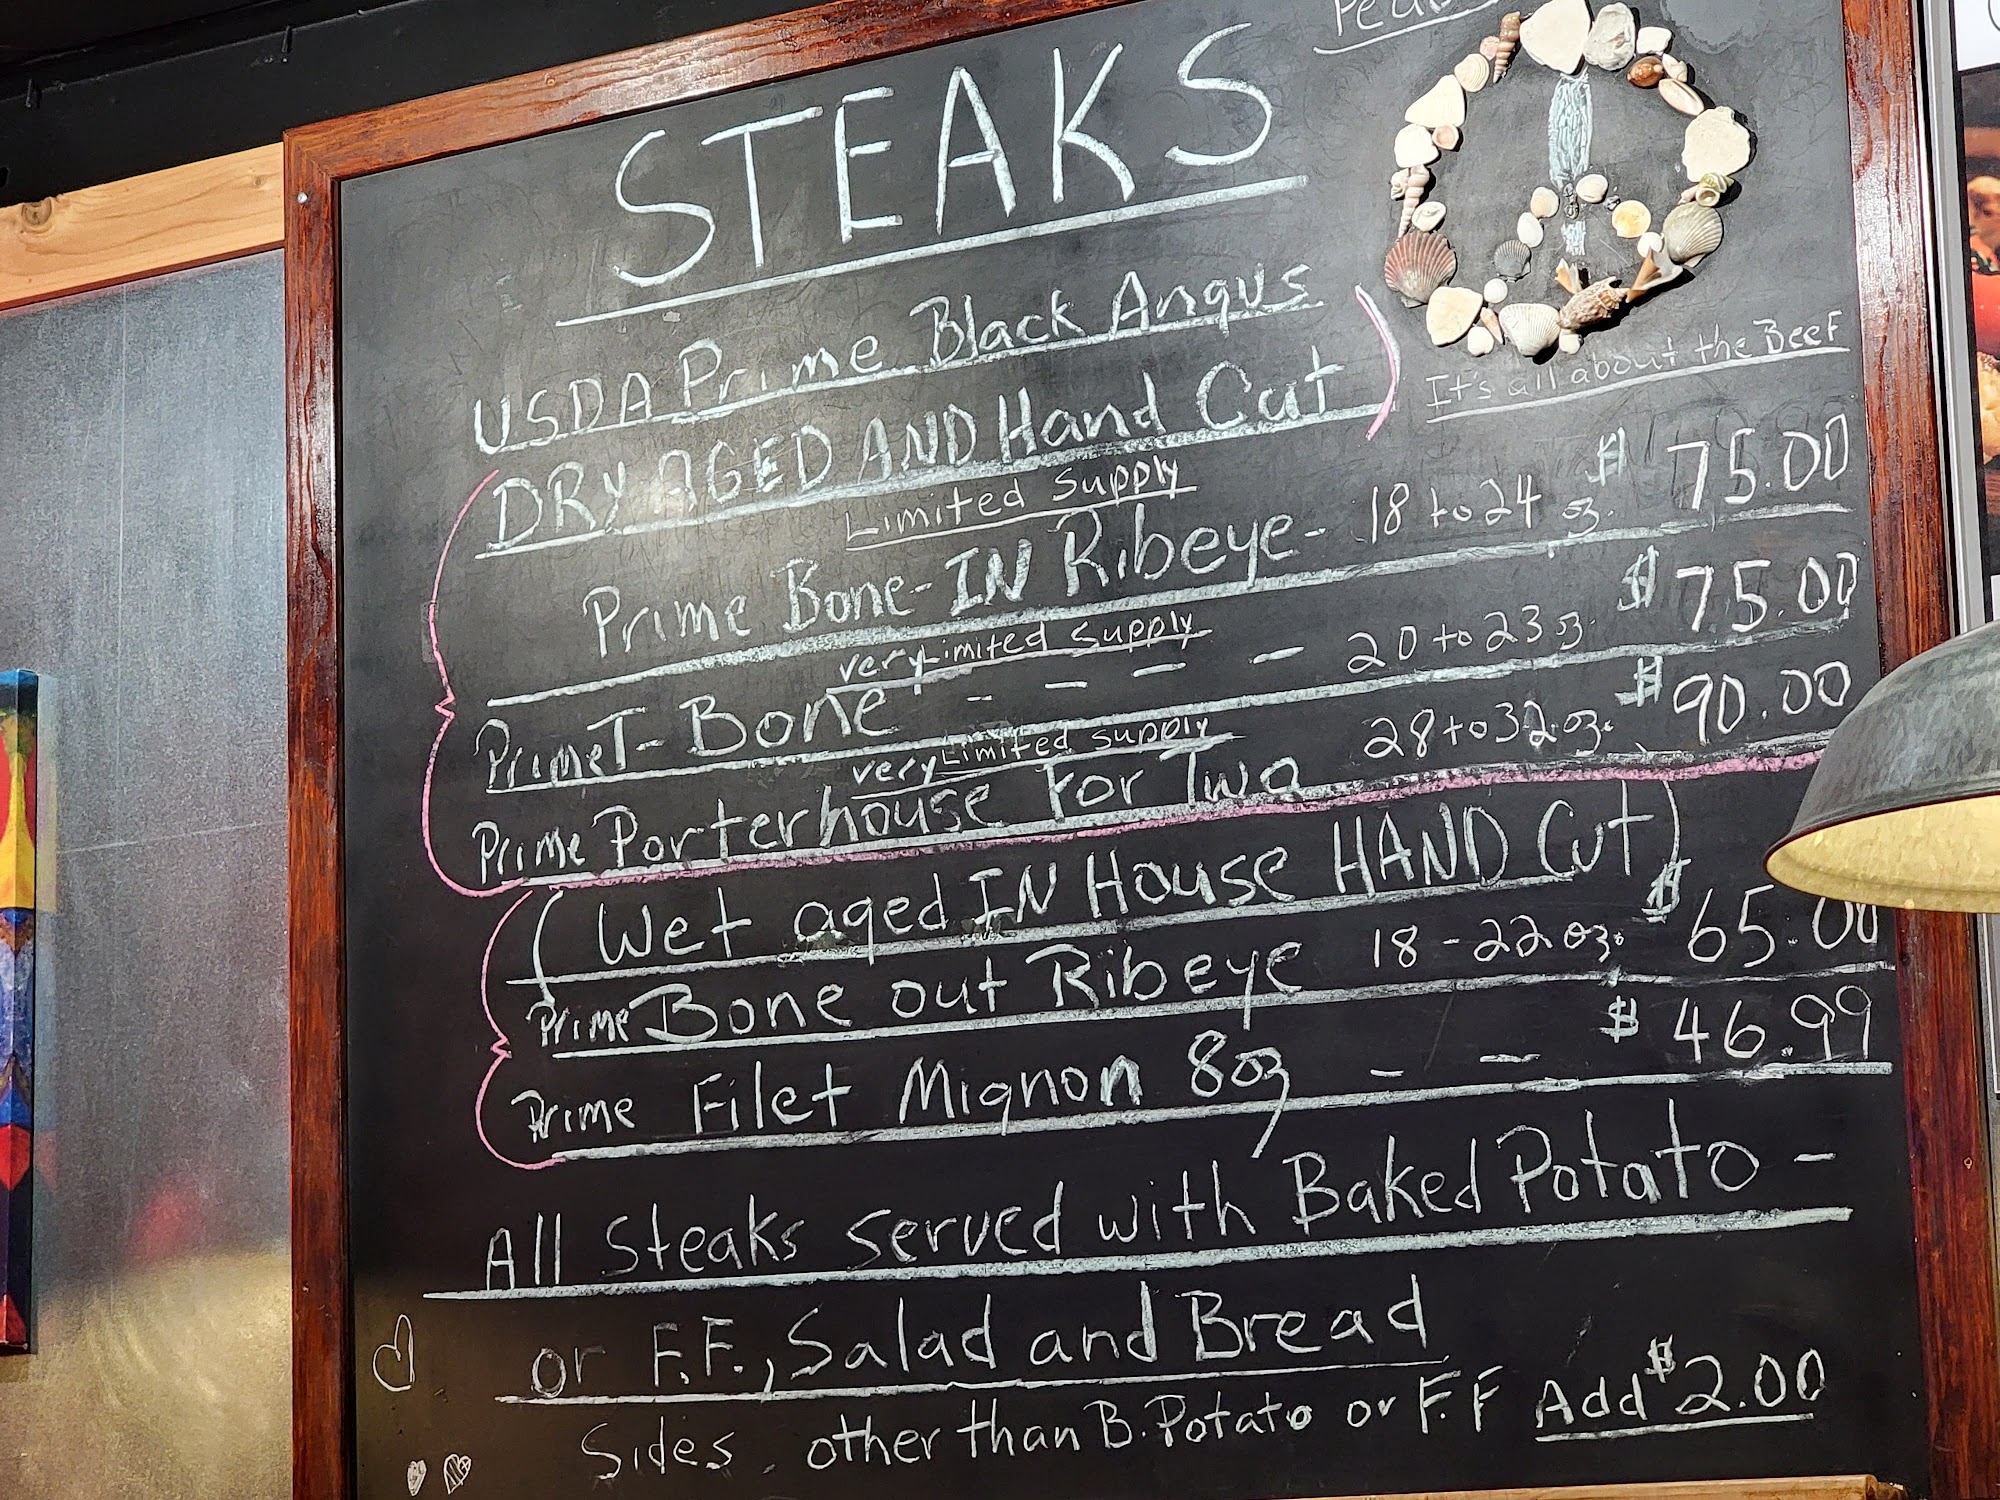 STEAKS
USDA Prime Black Angus
It's all about the Beef
DRY AGED AND Hand Cut)
Limited Supply
Prime Bone-IN Ribeye- 18 to 24 oz. $ 75.00
very Limited Supply
Prime T-Bone - - - - 20 to 23 oz. $ 75.00
very Limited Supply
Prime Porterhouse For Two 28 to 32 oz. $ 90.00
(Wet aged IN House HAND Cut)
Prime Bone out Ribeye 18-22 oz. $ 65.00
Prime Filet Mignon 8oz - - $ 46.99
All Steaks served with Baked Potato -
or F.F., Salad and Bread
Sides other than B. Potato or F.F Add $2.00